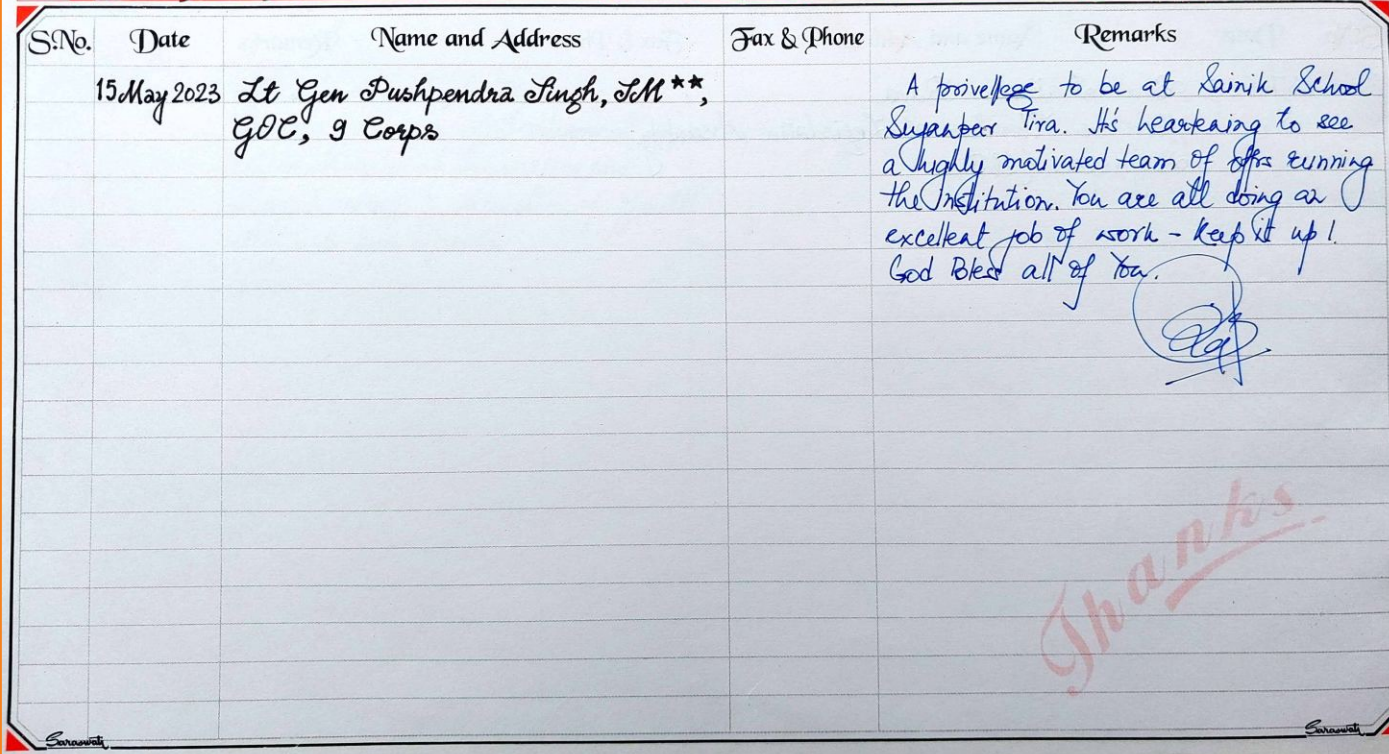 S.No. Date Name and Address Fax & Phone Remarks
15 May 2023 Lt Gen Pushpendra Singh, SM**,
GOC, 9 Corps
A privellege to be at Sainik School
Sujanpur Tira. It's heartening to see
a highly motivated team of offrs running
the Institution. You are all doing an
excellent job of work - keep it up!
God Bless all of You.
Thanks
Saraswati Saraswati